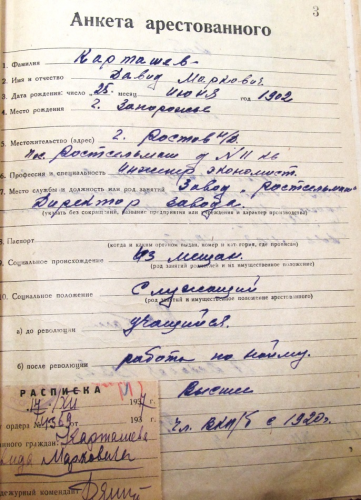 3
Анкета арестованного
1. Фамилия Карташев
2. Имя и отчество Давид Маркович
3. Дата рождения: число "25" июня год 1902
4. Место рождения г. Запорожье
5. Местожительство (адрес) г. Ростов н/Д.
пос. Ростсельмаш д N 11 кв
6. Профессия и специальность Инженер экономист.
7. Место службы и должность или род занятий Завод "Ростсельмаш"
Директор завода.
(указать без сокращений, название предприятия или учреждения и характер производства)
8. Паспорт
(когда и каким органом выдан, номер и категория, где прописан)
9. Социальное происхождение из мещан.
(род занятий родителей и их имущественное положение)
10. Социальное положение Служащий
(род занятий и имущественное положение арестованного)
а) до революции учащийся.
б) после революции работа по найму.
Высшее
Чл. ВКП/б с 1920г.
РАСПИСКА
XII 1937
ордера № 1369 193
гражд. Карташева
Марковича
дежурный комендант